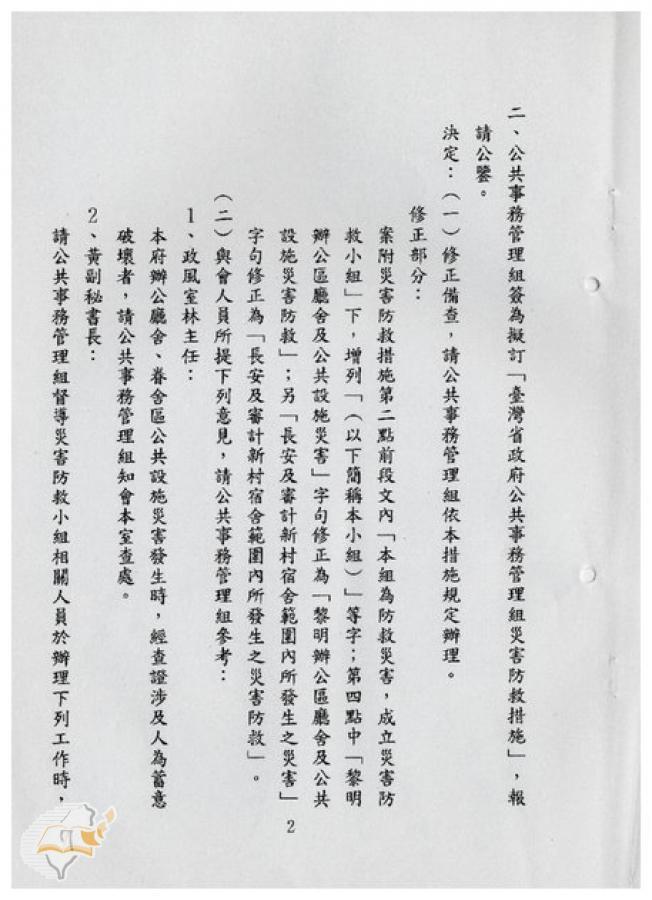 二、公共事務管理組簽為擬訂「臺灣省政府公共事務管理組災害防救措施」，報
請公鑒。
決定：（一）修正備查，請公共事務管理組依本措施規定辦理。
修正部分：
案附災害防救措施第二點前段文內「本組為防救災害，成立災害防
救小組」下，增列「（以下簡稱本小組）」等字；第四點中「黎明
辦公區廳舍及公共設施災害」字句修正為「黎明辦公區廳舍及公共
設施災害防救」；另「長安及審計新村宿舍範圍內所發生之災害」
字句修正為「長安及審計新村宿舍範圍內所發生之災害防救」。
（二）與會人員所提下列意見，請公共事務管理組參考：
1、政風室林主任：
本府辦公廳舍、眷舍區公共設施災害發生時，經查證涉及人為蓄意
破壞者，請公共事務管理組知會本室查處。
2、黃副秘書長：
請公共事務管理組督導災害防救小組相關人員於辦理下列工作時，
2